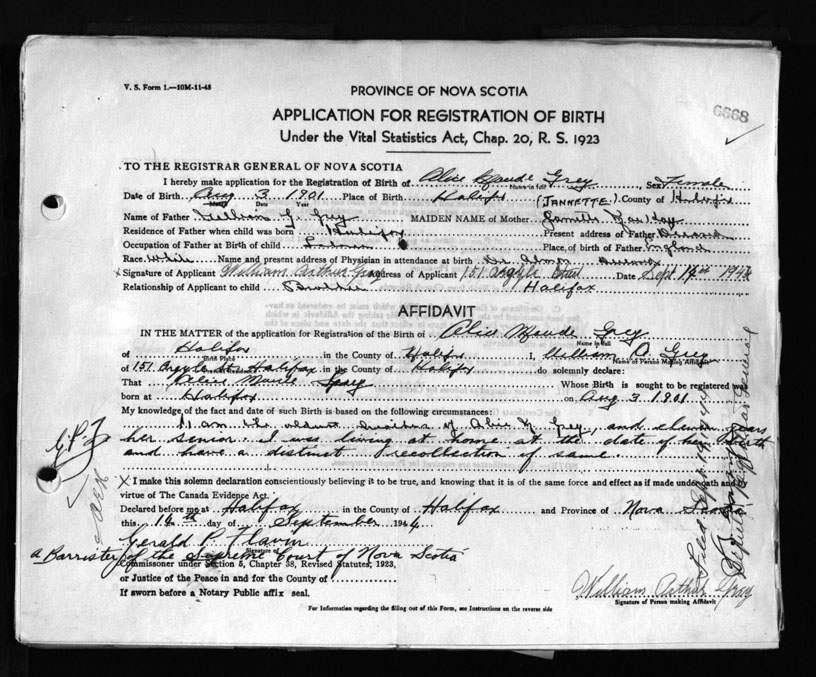 V. S. Form 1.—10M-11-43
PROVINCE OF NOVA SCOTIA
6668
APPLICATION FOR REGISTRATION OF BIRTH
Under the Vital Statistics Act, Chap. 20, R. S. 1923
TO THE REGISTRAR GENERAL OF NOVA SCOTIA
I hereby make application for the Registration of Birth of Alice Maude Grey Sex Female
Name in full
Date of Birth Aug 3 1901 Place of Birth Halifax County of Halifax
Month Day Year
Name of Father William Grey MAIDEN NAME of Mother (JANNETTE)
Residence of Father when child was born Halifax Present address of Father
Occupation of Father at Birth of child Place of birth of Father England
Race White Name and present address of Physician in attendance at birth Dr.
Signature of Applicant William Arthur Gray Address of Applicant 151 Argyle Street Date Sept 14th 1944
Relationship of Applicant to child Brother Halifax
AFFIDAVIT
IN THE MATTER of the application for Registration of the Birth of Alice Maude Grey
Name in full
of Halifax in the County of Halifax I, William A. Grey
Birth Place Name of Person Making Affidavit
of 151 Argyle St. Halifax in the County of Halifax do solemnly declare:
That Alice Maude Grey Whose Birth is sought to be registered was
born at Halifax on Aug 3 1901
My knowledge of the fact and date of such Birth is based on the following circumstances:
I am the oldest brother of Alice M Grey, and eleven years
her senior. I was living at home at the date of her birth
and have a distinct recollection of same.
G.P.F
X I make this solemn declaration conscientiously believing it to be true, and knowing that it is of the same force and effect as if made under oath and by
virtue of The Canada Evidence Act.
Declared before me at Halifax in the County of Halifax and Province of Nova Scotia
this 14th day of September 1944
Gerald P. Flavin
Signature of
a Barrister of the Supreme Court of Nova Scotia
Commissioner under Section 5, Chapter 38, Revised Statutes, 1923,
or Justice of the Peace in and for the County of
If sworn before a Notary Public affix seal.
William Arthur Gray
Signature of Person making Affidavit
For Information regarding the filling out of this Form, see Instructions on the reverse side
Deputy Registrar General